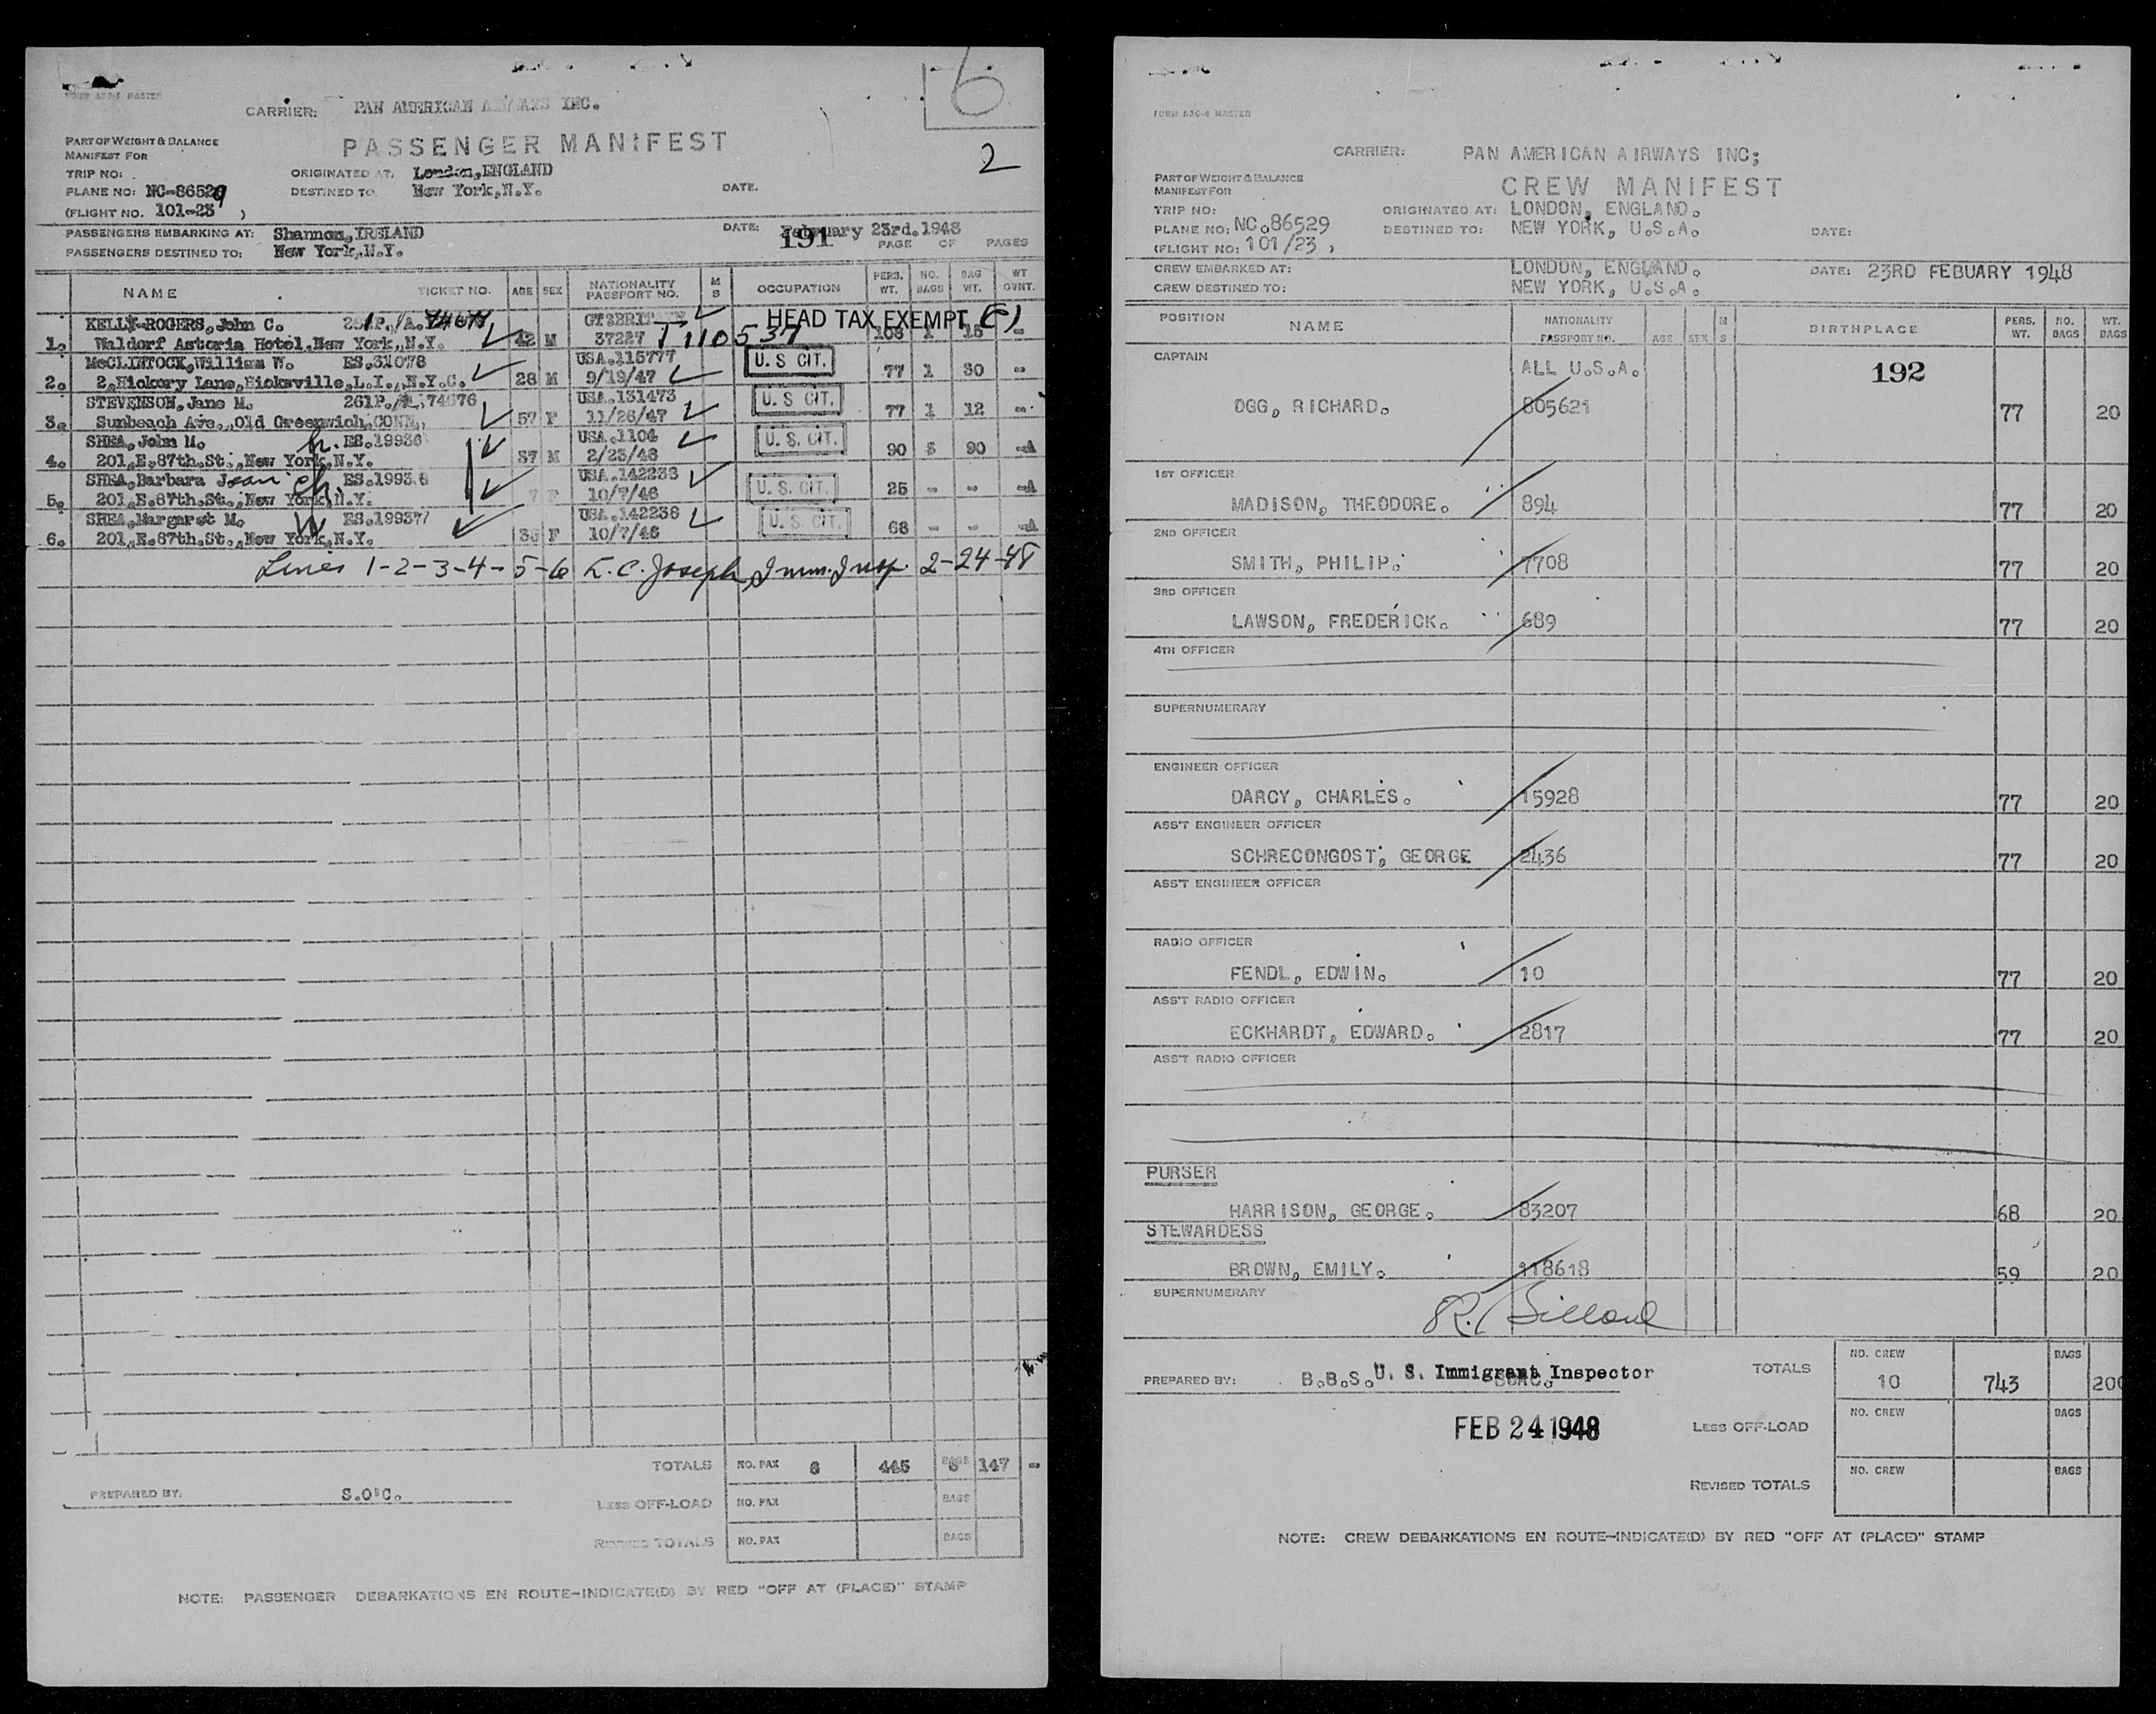 6
FORM A30-1 MASTER
CARRIER: PAN AMERICAN AIRWAYS INC.
PASSENGER MANIFEST
2
PART OF WEIGHT & BALANCE
MANIFEST FOR
TRIP NO: ORIGINATED AT. London, ENGLAND
PLANE NO: NC-86529 DESTINED TO. New York, N.Y. DATE.
(FLIGHT NO. 101-23 )
PASSENGERS EMBARKING AT: Shannon, IRELAND DATE: February 23rd. 1948
191 PAGE OF PAGES
PASSENGERS DESTINED TO: New York, N.Y.
NAME TICKET NO. AGE SEX NATIONALITY PASSPORT NO. M S OCCUPATION PERS. WT. NO. BAGS BAG WT. WT OVNT.
KELLY-ROGERS, John C. GTBRITAIN HEAD TAX EXEMPT
1. Waldorf Astoria Hotel, New York, N.Y. 42 M 37227 T110537 108 1 15 -
McCLINTOCK, William W. ES.31078 USA.115777 U. S CIT.
2. 2, Hickory Lane, Hicksville, L.I., N.Y.C. 28 M 9/19/47 77 1 30 -
STEVENSON, Jane M. 261P./A.74676 USA.131473 U. S CIT.
3. Sunbeach Ave., Old Greenwich, CONN, 57 F 11/26/47 77 1 12 -
SHEA, John M. h. ES.19936 USA.1104 U. S. CIT.
4. 201, E. 87th. St., New York, N.Y. 37 M 2/23/46 90 5 90 -A
SHEA, Barbara Jean ch ES.19938 USA.142238 U. S. CIT.
5. 201, E. 87th. St., New York, N.Y. 7 F 10/7/46 25 - - -A
SHEA, Margaret M. W ES.199377 USA.142238 U. S. CIT.
6. 201, E. 87th. St., New York, N.Y. 35 F 10/7/46 68 - - -A
Lines 1-2-3-4-5-6 L. C. Joseph, Imm. Insp. 2-24-48
TOTALS NO. PAX 6 445 BAGS 8 147 -
PREPARED BY: S.O'C.
LESS OFF-LOAD NO. PAX BAGS
REVISED TOTALS NO. PAX BAGS
NOTE: PASSENGER DEBARKATIONS EN ROUTE-INDICATE(D) BY RED "OFF AT (PLACE)" STAMP
FORM A30-4 MASTER
CARRIER: PAN AMERICAN AIRWAYS INC;
PART OF WEIGHT & BALANCE
MANIFEST FOR
CREW MANIFEST
TRIP NO: ORIGINATED AT: LONDON, ENGLAND.
PLANE NO: NC.86529 DESTINED TO: NEW YORK, U.S.A. DATE:
(FLIGHT NO: 101/23 )
CREW EMBARKED AT: LONDON, ENGLAND. DATE: 23RD FEBUARY 1948
CREW DESTINED TO: NEW YORK, U.S.A.
POSITION NAME NATIONALITY PASSPORT NO. AGE SEX M S BIRTHPLACE PERS. WT. NO. BAGS WT. BAGS
CAPTAIN ALL U.S.A. 192
OGG, RICHARD. 805621 77 20
1ST OFFICER
MADISON, THEODORE. 894 77 20
2ND OFFICER
SMITH, PHILIP. 7708 77 20
3RD OFFICER
LAWSON, FREDERICK. 689 77 20
4TH OFFICER
SUPERNUMERARY
ENGINEER OFFICER
DARCY, CHARLES. 15928 77 20
ASS'T ENGINEER OFFICER
SCHRECONGOST, GEORGE 2436 77 20
ASS'T ENGINEER OFFICER
RADIO OFFICER
FENDL, EDWIN. 10 77 20
ASS'T RADIO OFFICER
ECKHARDT, EDWARD. 2817 77 20
ASS'T RADIO OFFICER
PURSER
HARRISON, GEORGE. 83207 68 20
STEWARDESS
BROWN, EMILY. 118618 59 20
SUPERNUMERARY
R. Billard
PREPARED BY: B.B.S. U. S. Immigrant Inspector TOTALS NO. CREW 10 743 BAGS 200
FEB 24 1948
LESS OFF-LOAD NO. CREW BAGS
REVISED TOTALS NO. CREW BAGS
NOTE: CREW DEBARKATIONS EN ROUTE-INDICATE(D) BY RED "OFF AT (PLACE)" STAMP